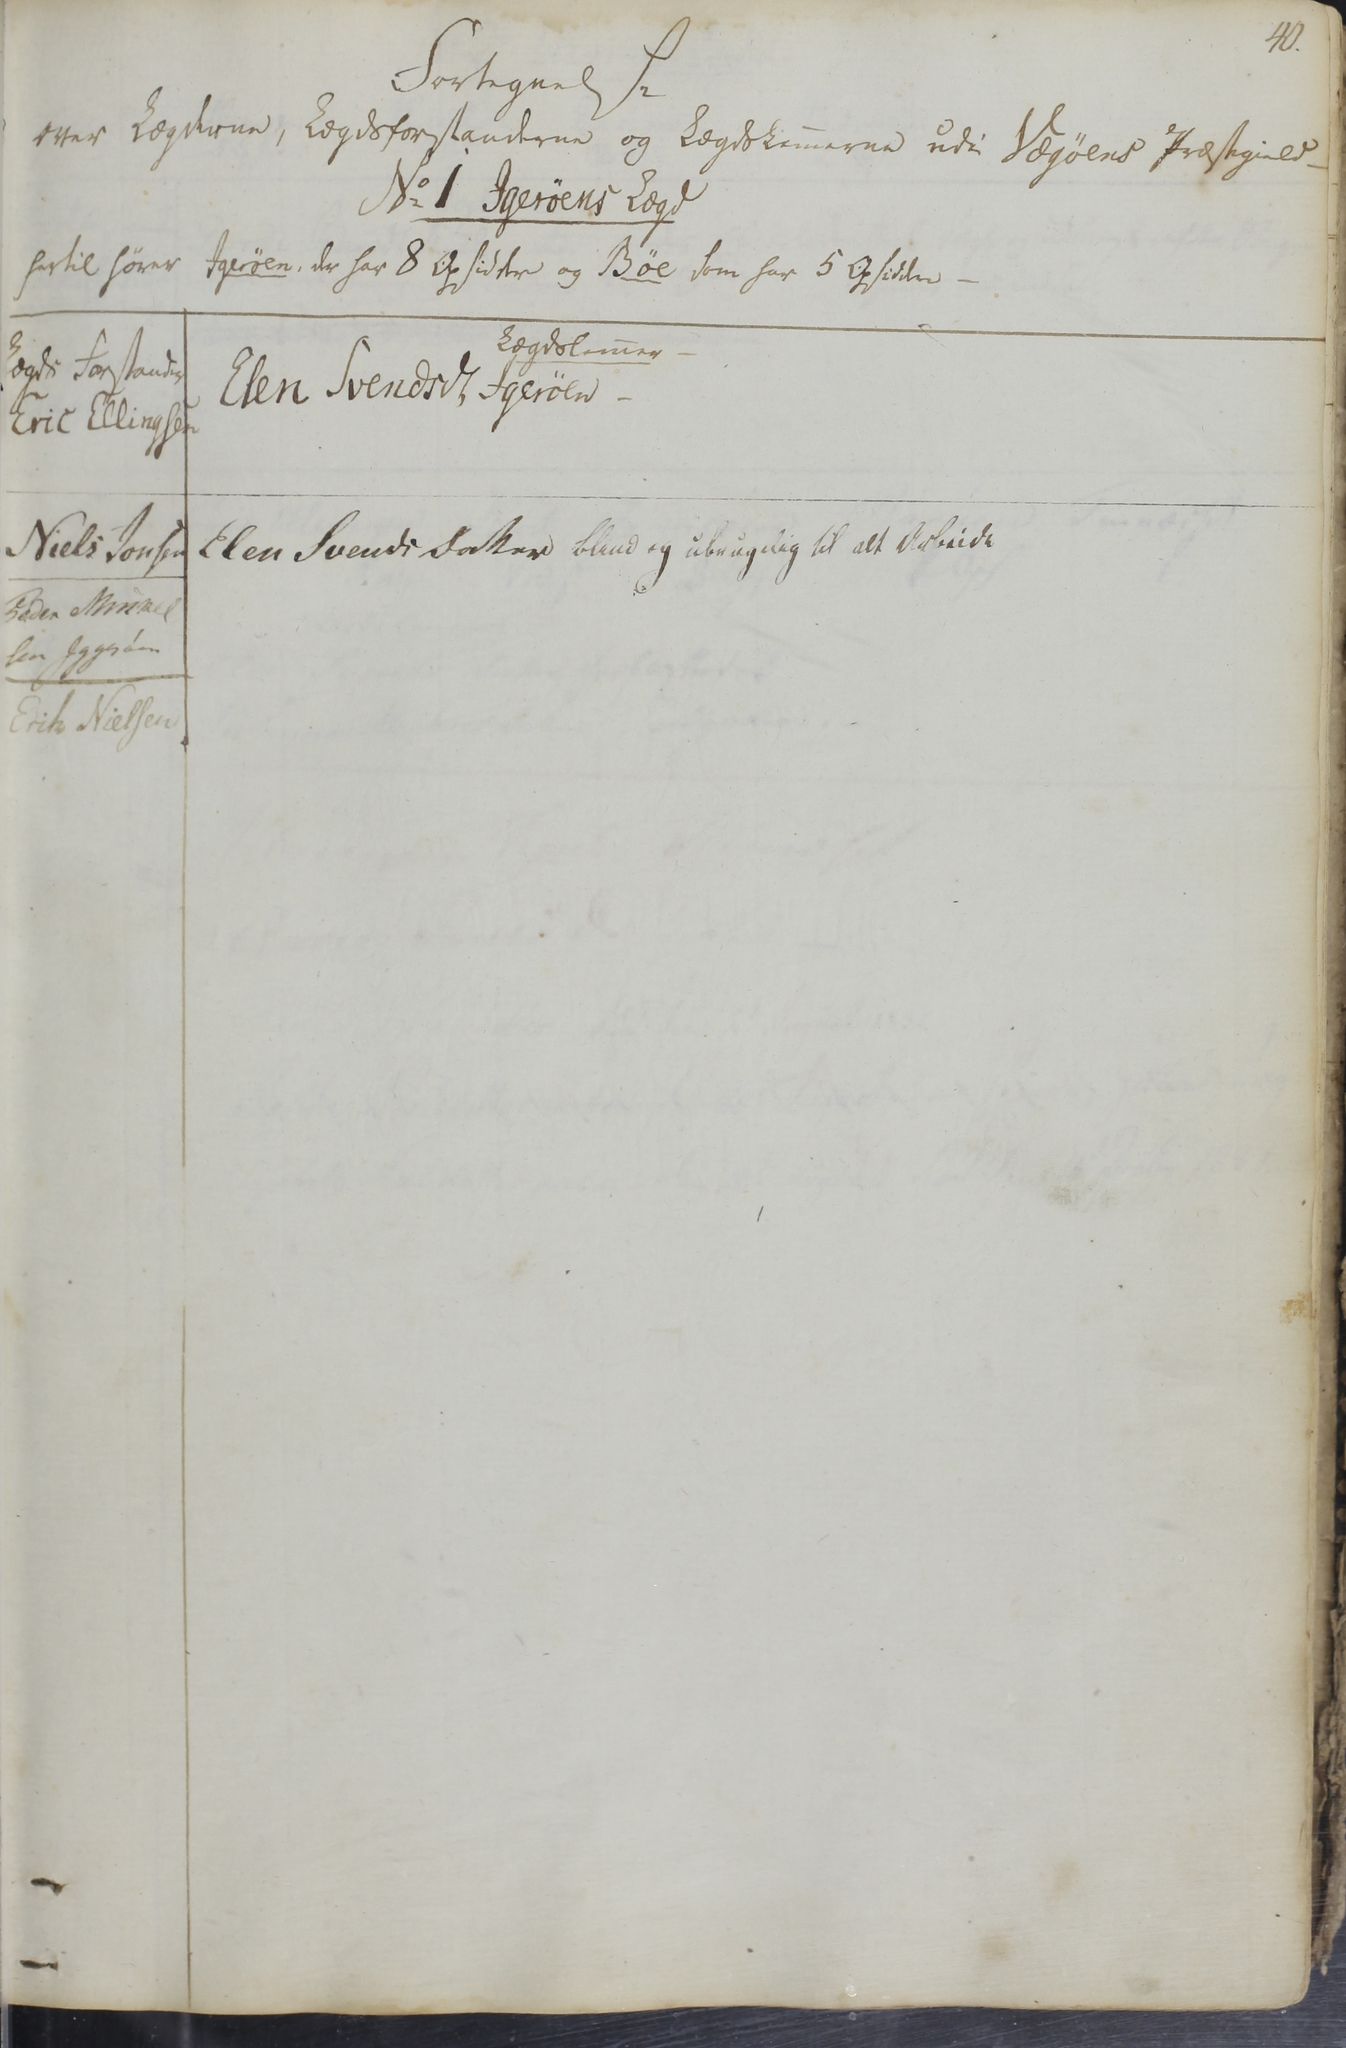 40.
Fortegnelse
over Lægderne, Lægdsforstanderne og Lægdslem̅erne udi Vægöens Præstegield -
No 1 Igeröens Lægd
hertil hörer Igeröen, der har 8 Opsiddere og Böe som har 5 Opsiddere -
Lægdslem̅er -
Lægds Forstander
Elen Svendsd. Igeröen -
Eric Ellingsen
Niels Jonsen
Elen Svends Datter blind og ubrugelig til alt Arbeide
Peder Mikkel
sen Iggeröen
Erik Nielsen